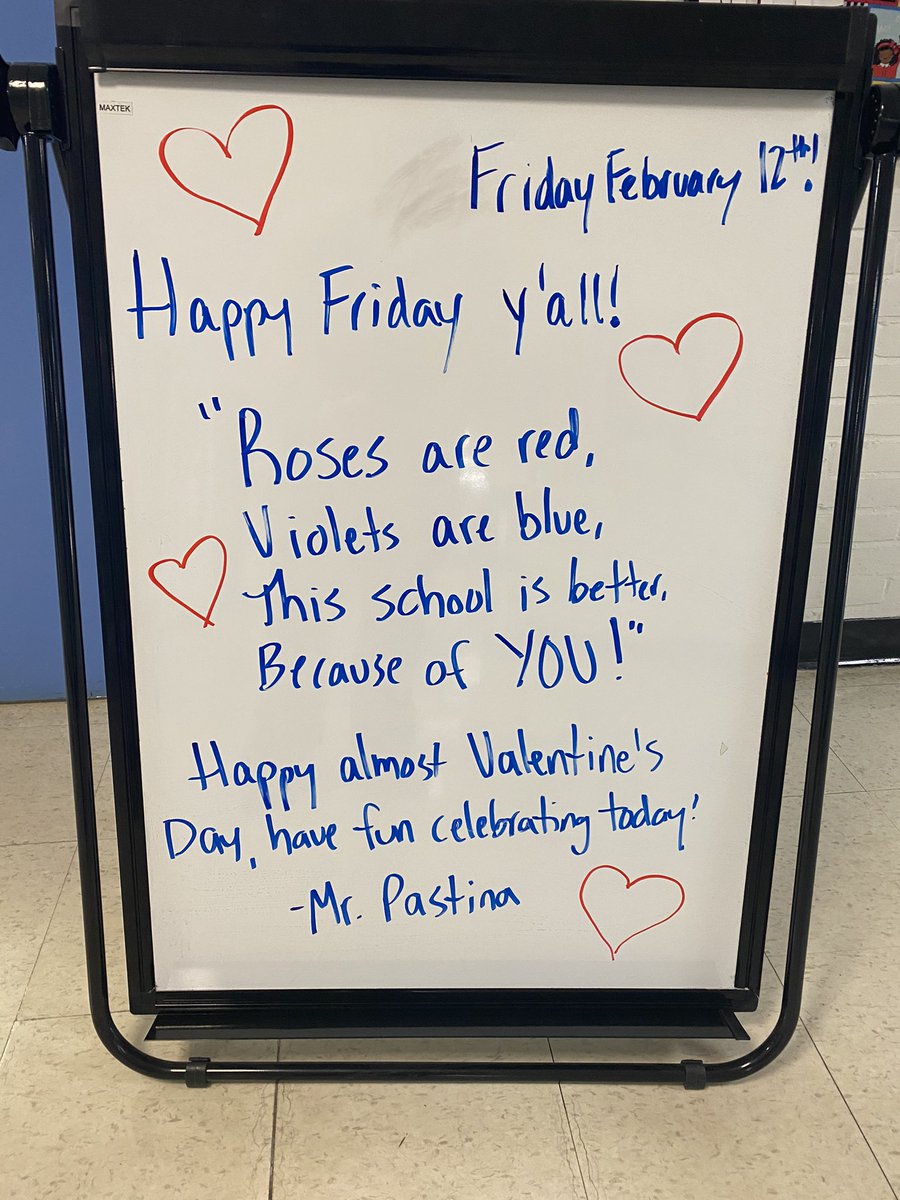 MAXTEK
Friday February 12th!
Happy Friday y'all!
"Roses are red,
Violets are blue,
This school is better,
Because of YOU!"
Happy almost Valentine's
Day, have fun celebrating today!
-Mr. Pastina